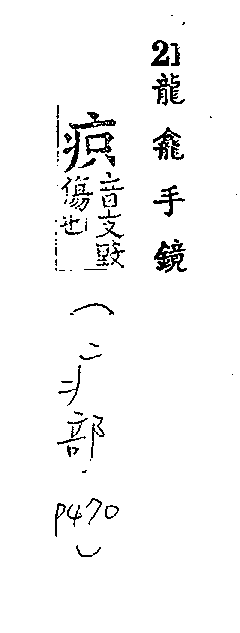 21 龍龕手鏡
疻 音支毆
傷也
(疒部 P470)